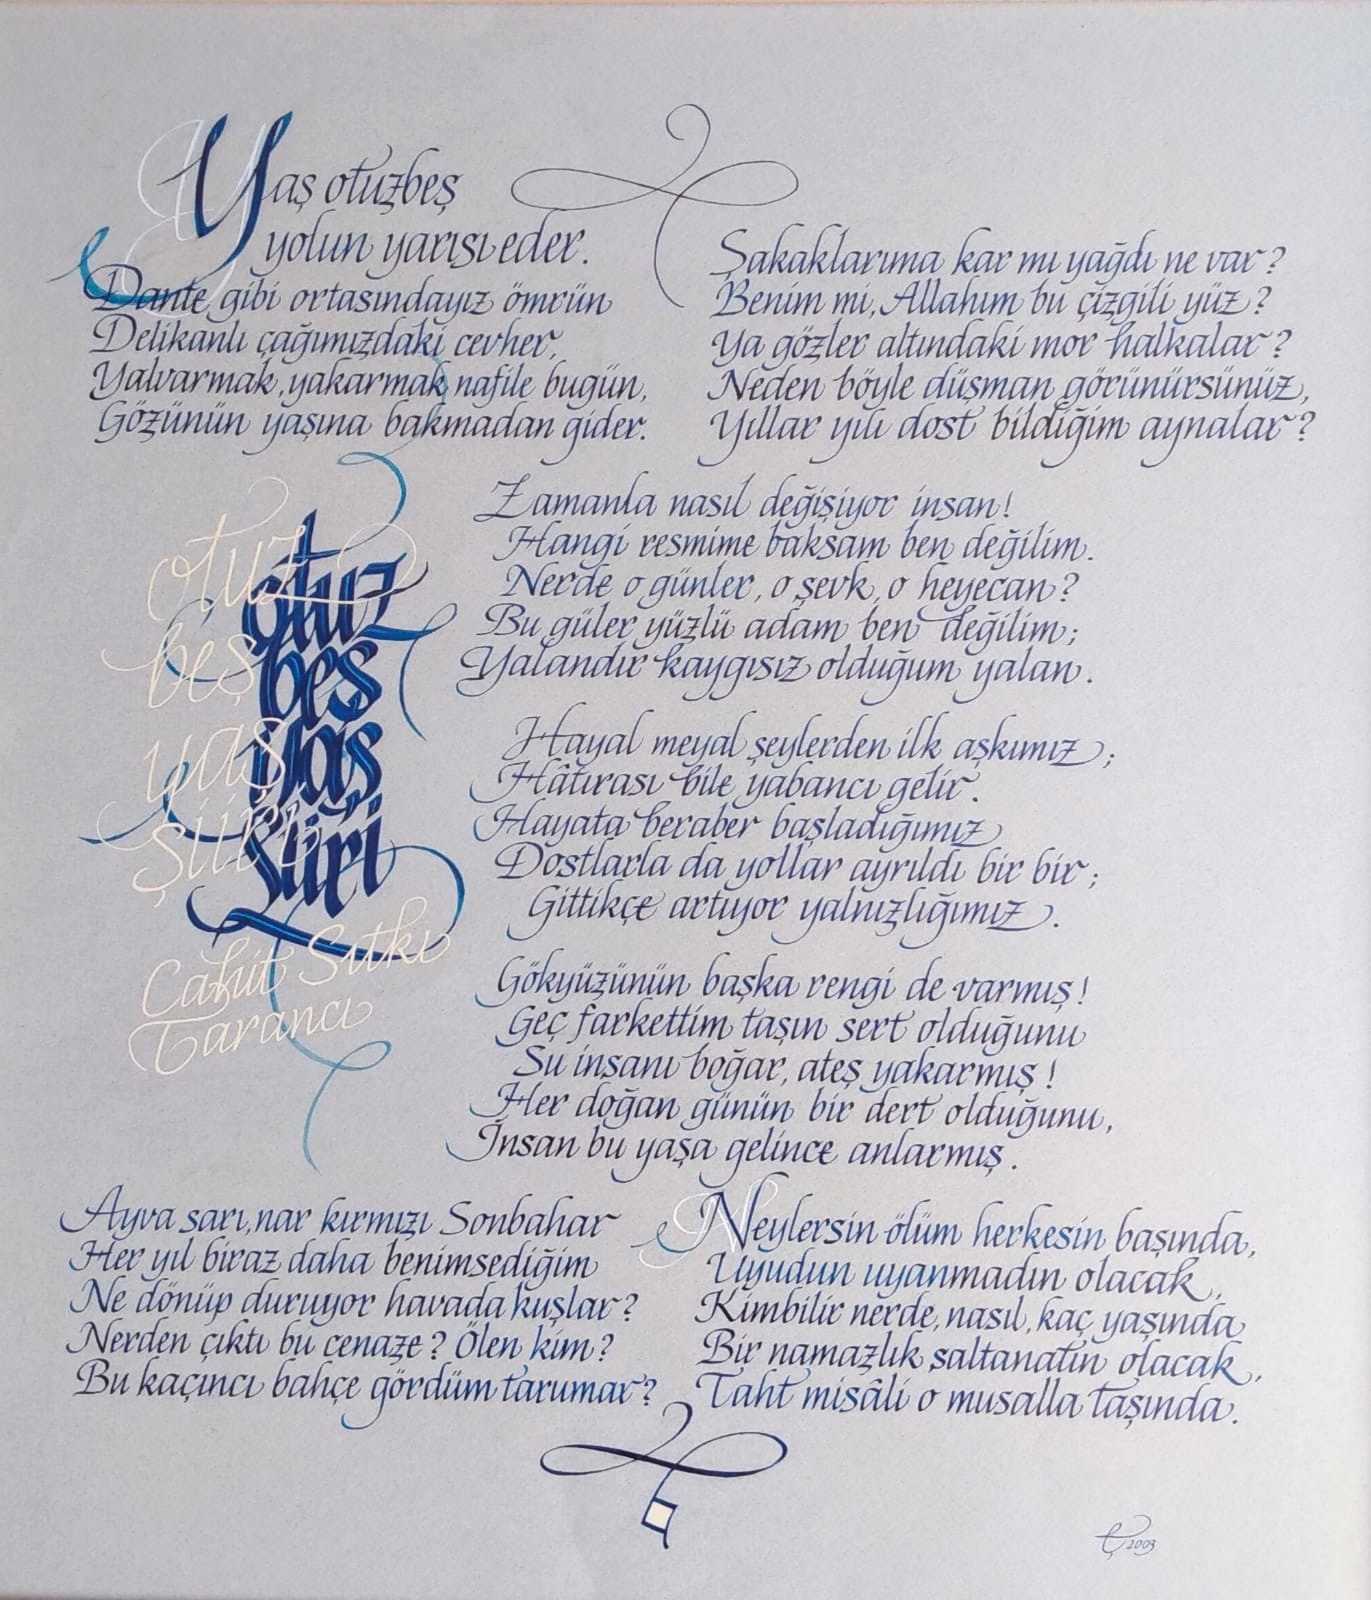 Yaş otuzbeş
yolun yarısı eder.
Dante gibi ortasındayız ömrün
Delikanlı çağımızdaki cevher,
Yalvarmak, yakarmak nafile bugün,
Gözünün yaşına bakmadan gider.
Şakaklarıma kar mı yağdı ne var?
Benim mi, Allahım bu çizgili yüz?
Ya gözler altındaki mor halkalar?
Neden böyle düşman görünürsünüz,
Yıllar yılı dost bildiğim aynalar?
Zamanla nasıl değişiyor insan!
Hangi resmime baksam ben değilim.
Nerde o günler, o şevk, o heyecan?
Bu güler yüzlü adam ben değilim;
Yalandır kaygısız olduğum yalan.
otuz
beş
yaş
şiiri
otuz
beş
yaş
şiiri
Cahit Sıtkı
Tarancı
Hayal meyal şeylerden ilk aşkımız;
Hâtırası bile yabancı gelir.
Hayata beraber başladığımız
Dostlarla da yollar ayrıldı bir bir;
Gittikçe artıyor yalnızlığımız.
Gökyüzünün başka rengi de varmış!
Geç farkettim taşın sert olduğunu
Su insanı boğar, ateş yakarmış!
Her doğan günün bir dert olduğunu,
İnsan bu yaşa gelince anlarmış.
Ayva sarı, nar kırmızı Sonbahar
Her yıl biraz daha benimsediğim
Ne dönüp duruyor havada kuşlar?
Nerden çıktı bu cenaze? Ölen kim?
Bu kaçıncı bahçe gördüm tarumar?
Neylersin ölüm herkesin başında,
Uyudun uyanmadın olacak,
Kimbilir nerde, nasıl, kaç yaşında
Bir namazlık saltanatın olacak,
Taht misâli o musalla taşında.
2003